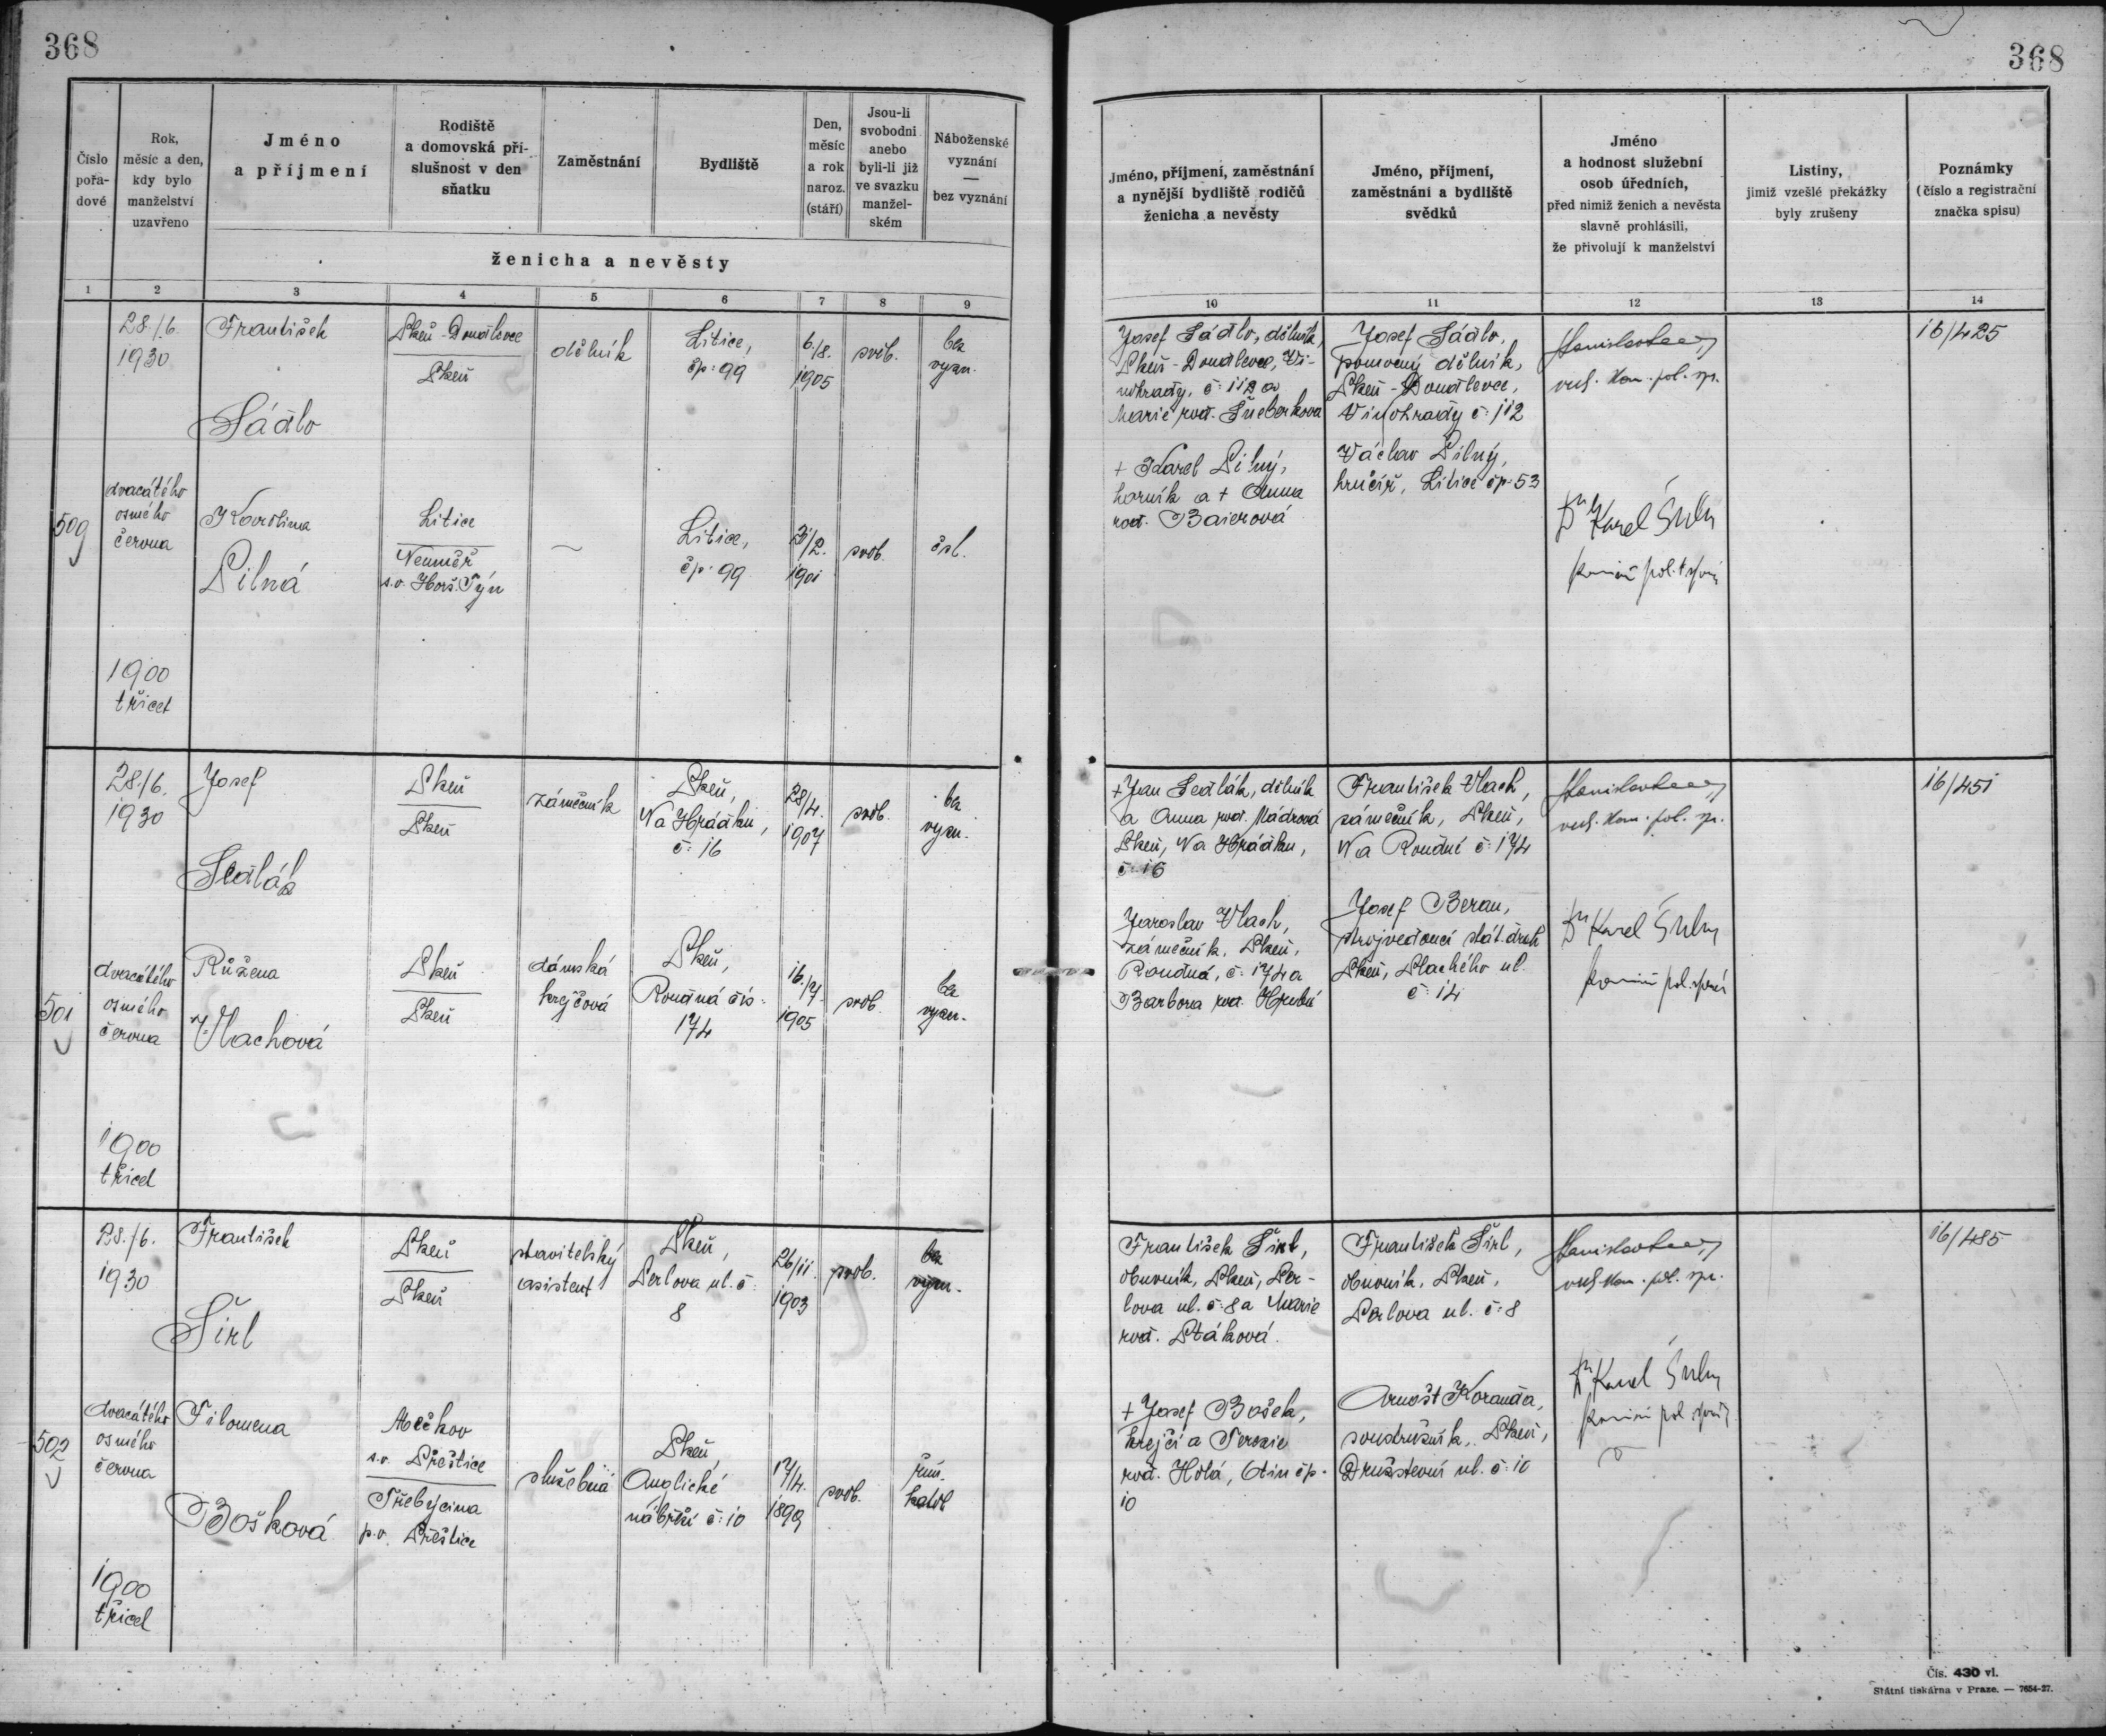 368
368
Číslo pořadové
Rok, měsíc a den, kdy bylo manželství uzavřeno
Jméno a příjmení
Rodiště a domovská příslušnost v den sňatku
Zaměstnání
Bydliště
Den, měsíc a rok naroz. (stáří)
Jsou-li svobodni anebo byli-li již ve svazku manželském
Náboženské vyznání — bez vyznání
ženicha a nevěsty
Jméno, příjmení, zaměstnání a nynější bydliště rodičů ženicha a nevěsty
Jméno, příjmení, zaměstnání a bydliště svědků
Jméno a hodnost služební osob úředních, před nimiž ženich a nevěsta slavně prohlásili, že přivolují k manželství
Listiny, jimiž vzešlé překážky byly zrušeny
Poznámky (číslo a registrační značka spisu)
1 2 3 4 5 6 7 8 9 10 11 12 13 14
509
28./6.
1930
dvacátého
osmého
června
1900
třicet
František
Sádlo
Plzeň-Doudlevce
Plzeň
dělník
Litice,
čp. 99
6./8.
1905
svob.
bez
vyzn.
Karolina
Pilná
Litice
s.o. Horš. Týn
—
Litice,
čp. 99
1901
svob.
čsl.
Josef Sádlo, dělník,
Plzeň-Doudlevce, Vi-
nohrady, č. 112 a
Marie roz.
+ Karel Pilný,
horník a + Anna
roz. Baierová
Josef Sádlo,
pomocný dělník,
Plzeň-Doudlevce,
Vinohrady č. 112
Václav Pilný,
hrnčíř, Litice čp. 53
Dr Karel
16/425
501
28./6.
1930
dvacátého
osmého
června
1900
třicet
Josef
Sedlák
Plzeň
Plzeň
zámečník
Plzeň,
Na Hrádku,
č. 16
28/4.
1907
svob.
bez
vyzn.
Růžena
Vlachová
Plzeň
Plzeň
dámská
krejčová
Plzeň,
Roudná čís.
174
16./7.
1905
svob.
bez
vyzn.
+ Jan Sedlák, dělník
a Anna roz. Mádrová
Plzeň, Na Hrádku,
č. 16
Jaroslav Vlach,
zámečník, Plzeň,
Roudná, č. 174 a
Barbora roz. Hrubá
František Vlach,
zámečník, Plzeň,
Na Roudné č. 174
Josef Beran,
strojvedoucí stát. drah
Plzeň, Plachého ul.
č. 14
Dr Karel
16/451
502
28./6.
1930
dvacátého
osmého
června
1900
třicet
František
Širl
Plzeň
Plzeň
stavitelský
asistent
Plzeň,
Perlova ul. č.
8
26/11.
1903
svob.
bez
vyzn.
Filomena
Bošková
Měčkov
s.o. Přeštice
Třebýcina
p.o. Přeštice
služebná
Plzeň
Anglické
nábřeží č. 10
17/4.
1899
svob.
řím.
katol
František Širl,
obuvník, Plzeň, Per-
lova ul. č. 8 a Marie
roz. Ptáková.
+ Josef Bošek,
krejčí a Terezie
roz. Holá, Otín čp.
10
František Širl,
obuvník, Plzeň,
Perlova ul. č. 8
Arnošt Koranda,
soustružník, Plzeň,
Družstevní ul. č. 10
Dr Karel
16/485
Čís. 430 vl.
Státní tiskárna v Praze. — 7654-27.